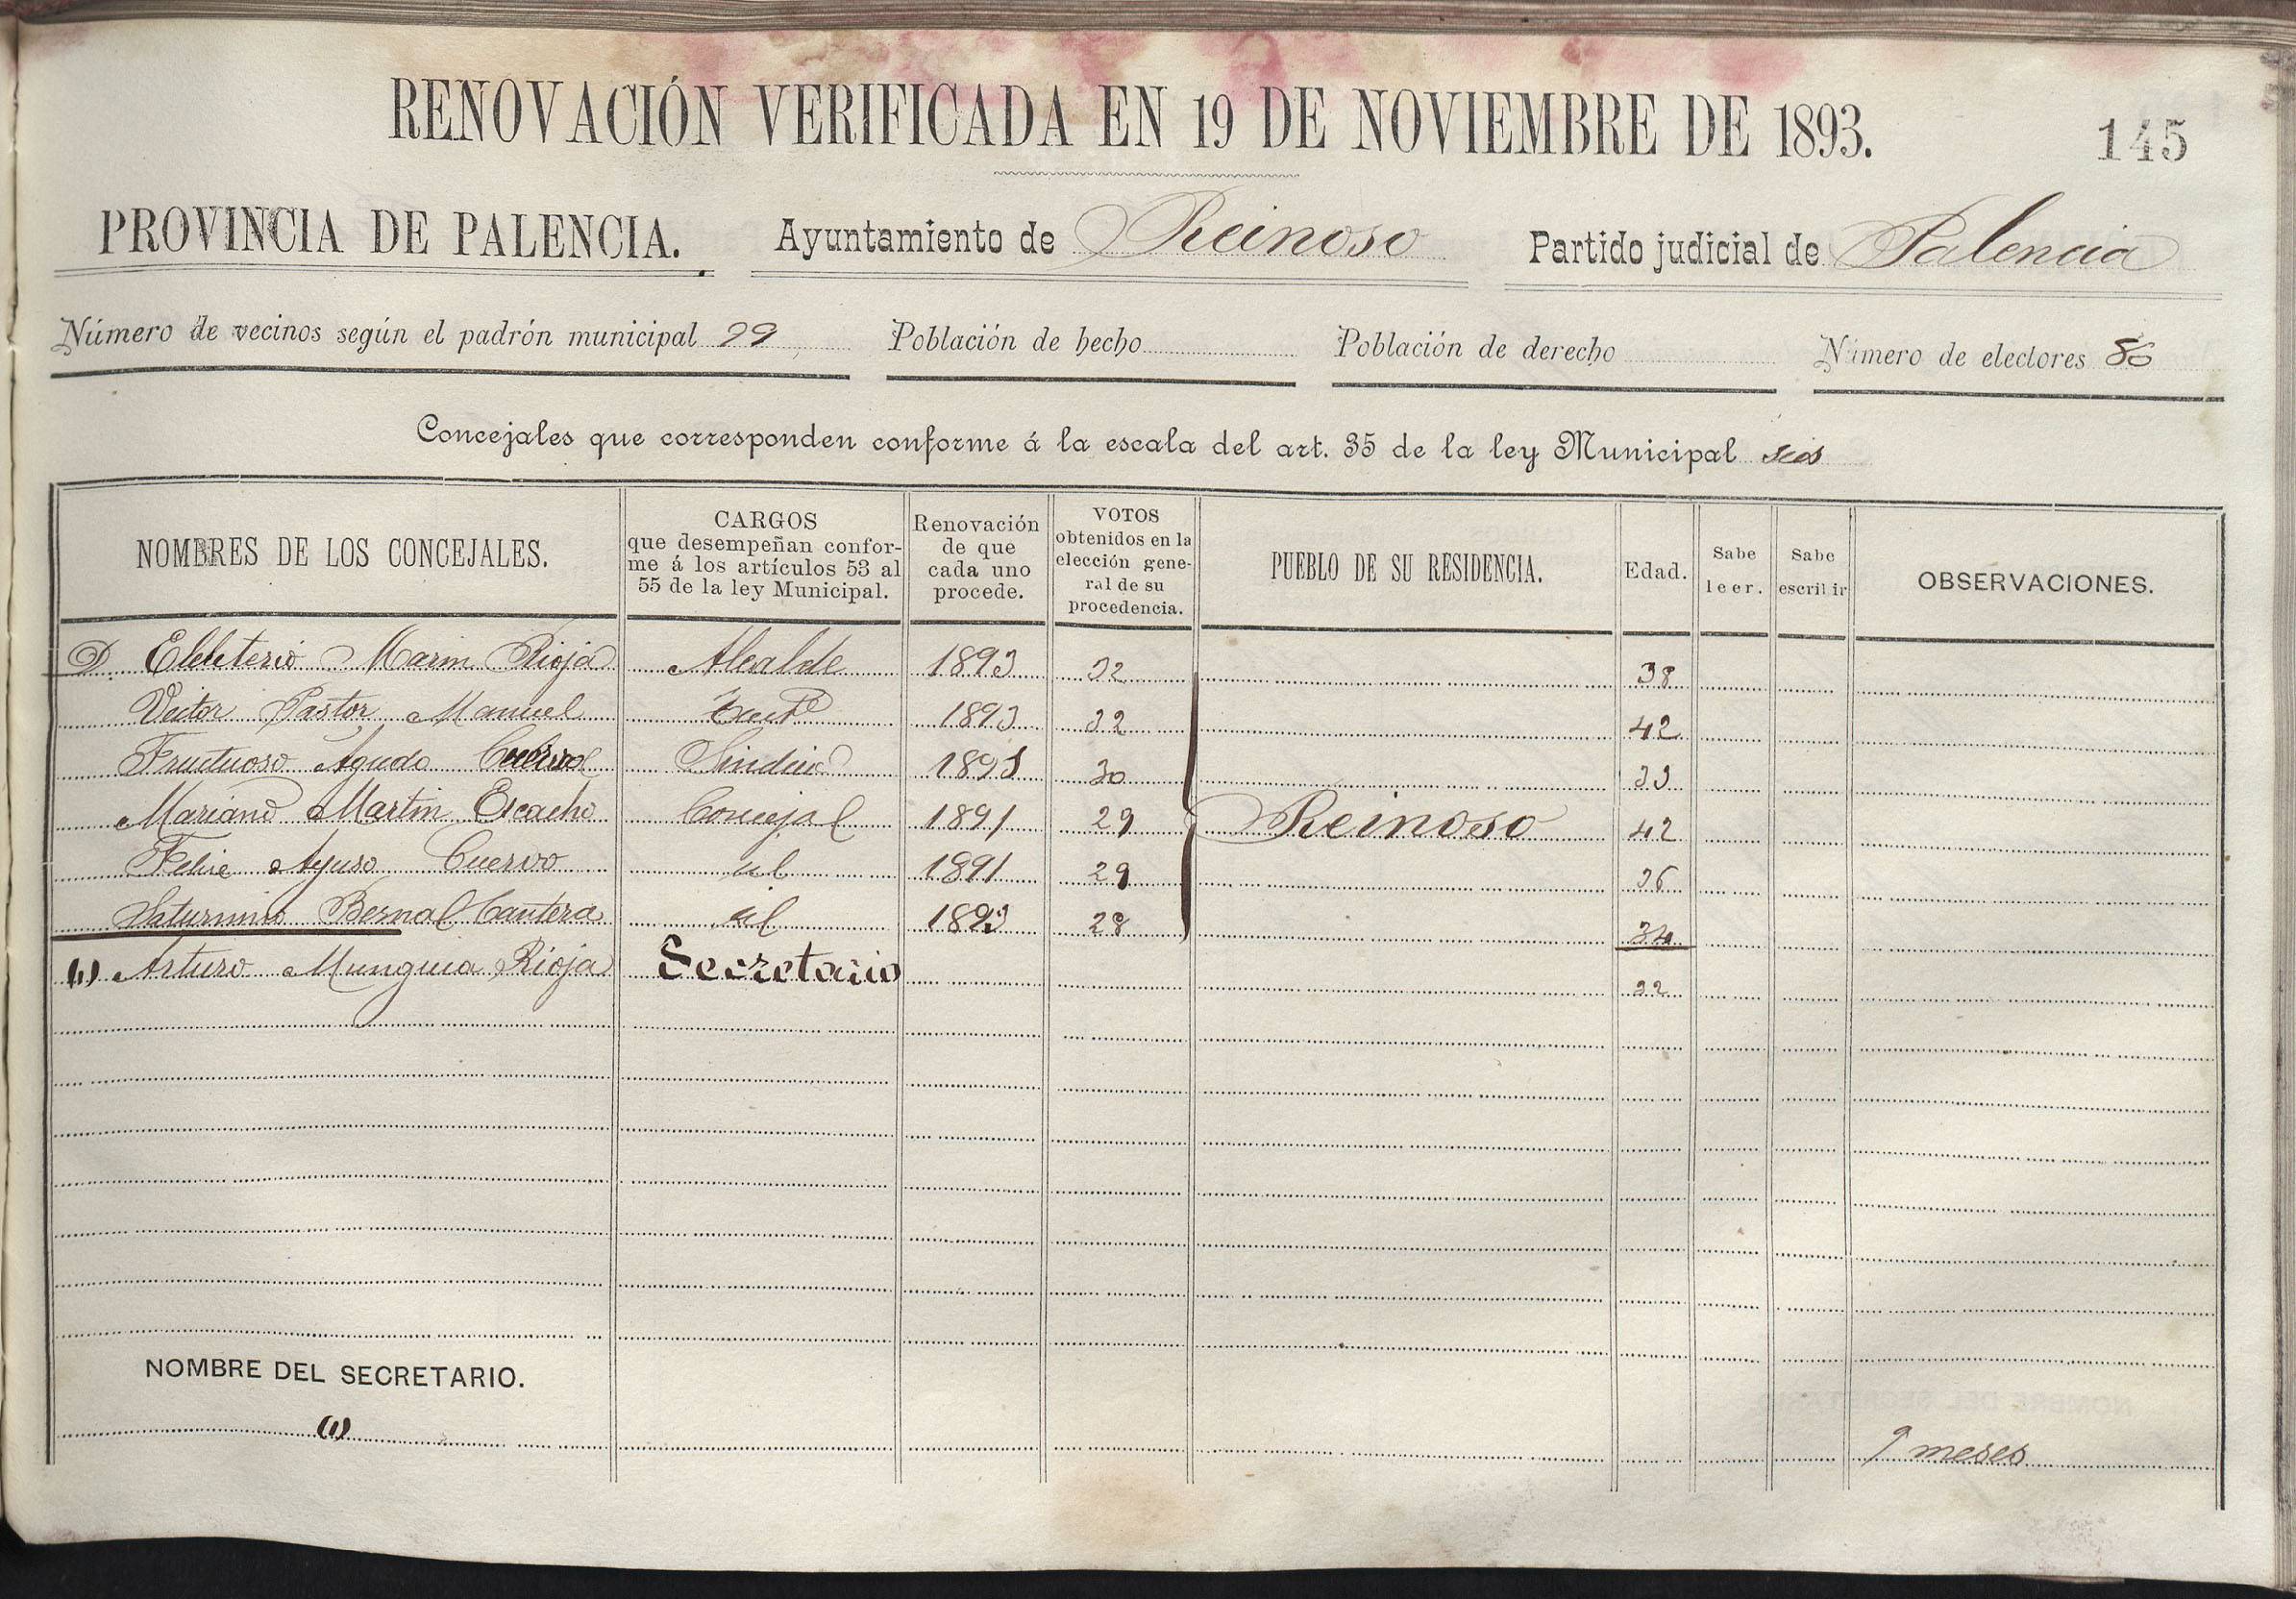 RENOVACIÓN VERIFICADA EN 19 DE NOVIEMBRE DE 1893.
145
PROVINCIA DE PALENCIA. Ayuntamiento de Reinoso Partido judicial de Palencia
Número de vecinos según el padrón municipal 99 Población de hecho Población de derecho Número de electores 86
Concejales que corresponden conforme á la escala del art. 35 de la ley Municipal seis
NOMBRES DE LOS CONCEJALES.
CARGOS
que desempeñan confor-
me á los artículos 53 al
55 de la ley Municipal.
Renovación
de que
cada uno
procede.
VOTOS
obtenidos en la
elección gene-
ral de su
procedencia.
PUEBLO DE SU RESIDENCIA.
Edad.
Sabe
leer.
Sabe
escribir
OBSERVACIONES.
D. Eleuterio Marin Rioja Alcalde 1893 32 38
Victor Pastor Manuel 1893 32 42
Fructuoso Agudo Cuervo Sindico 1893 30 33
Mariano Martin Escacho Concejal 1891 29 Reinoso 42
Felix Ayuso Cuervo id 1891 29 36
Saturnino Bernal Cantera id 1893 28 34
(1) Arturo Munguia Rioja Secretario 32
NOMBRE DEL SECRETARIO.
(1) 9 meses